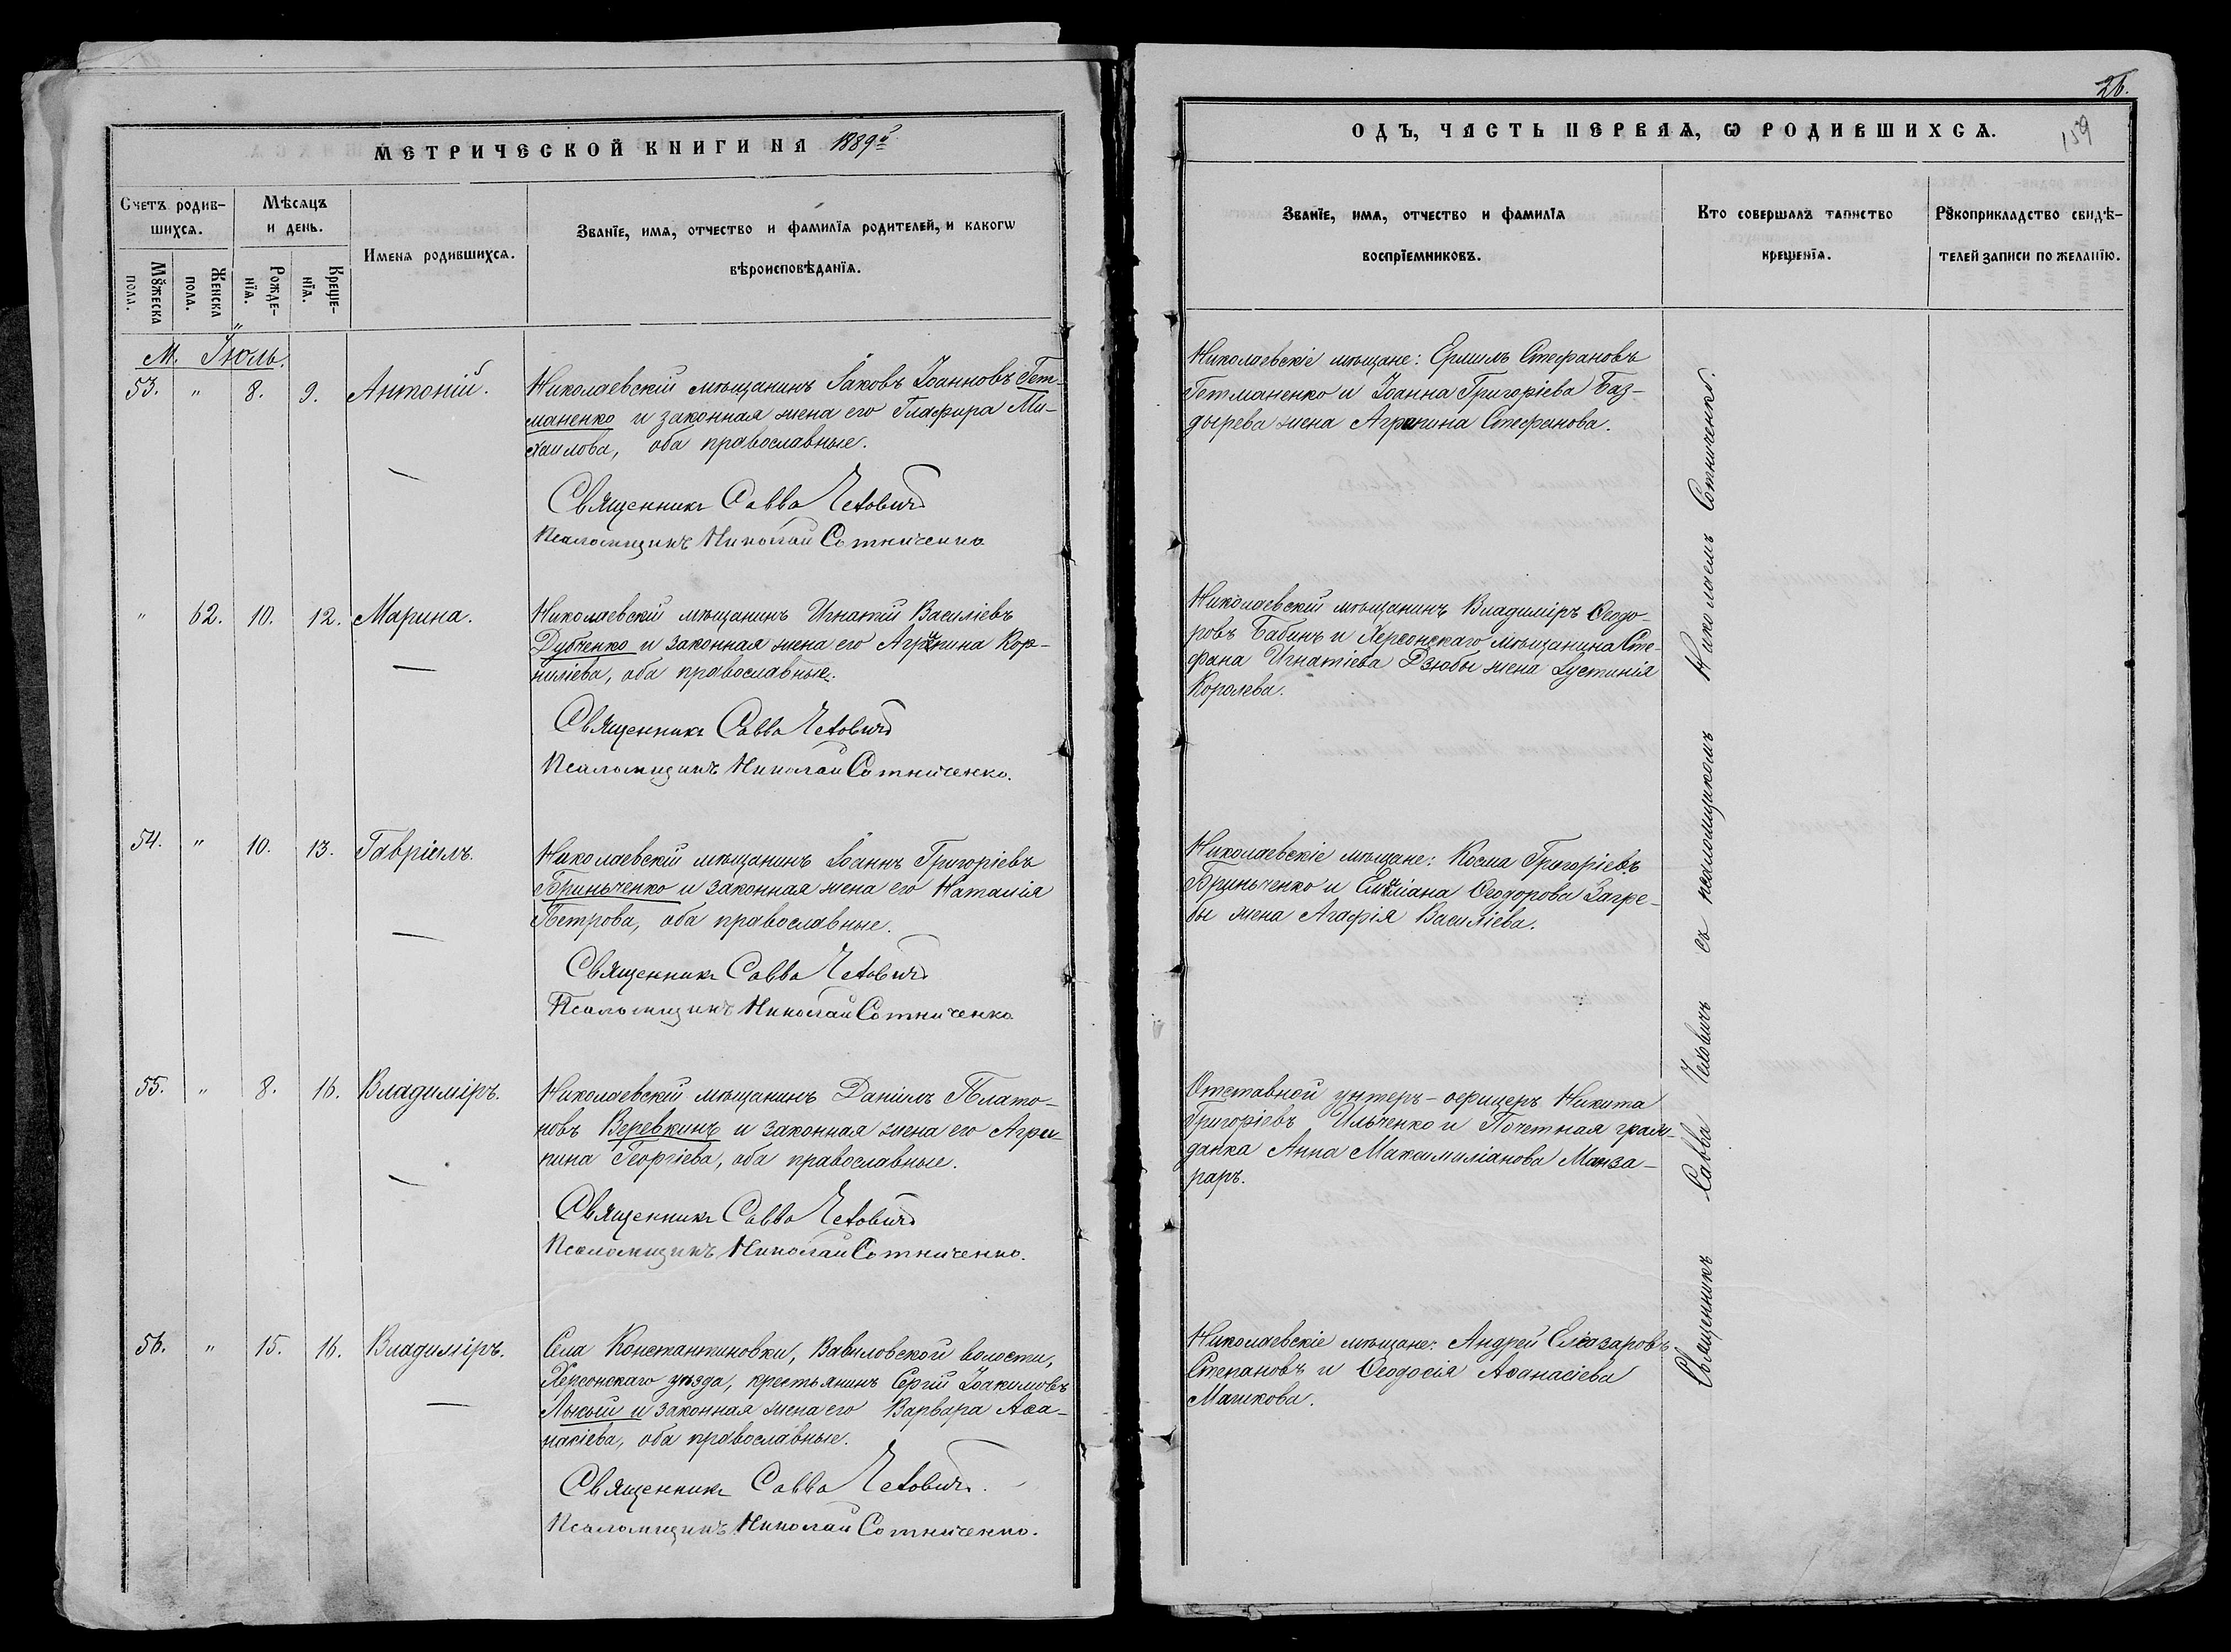 МЕТРИЧЕСКОЙ КНИГИ НА 1889й
Счетъ родив-
шихся.
Мѣсяцъ
и день.
Имена родившихся.
Званїе, имя, отчество и фамилїя родителей, и какогѡ
вѣроисповѣданїя.
Мꙋжеска
пола.
Женска
пола.
Рожде-
нїя.
Креще-
нїя.
М. Іюль.
53. " 8. 9. Антоній.
Николаевскій мѣщанинъ Іаковъ Іоанновъ Гет-
маненко и законная жена его Глафира Ми-
хаилова, оба православные.
Священникъ Савва Чеховичъ
Псаломщикъ Николай Сотниченко
" 62. 10. 12. Марина.
Николаевскій мѣщанинъ Игнатій Василіевъ
Дубченко и законная жена его Агрипина Кор-
ниліева, оба православные.
Священникъ Савва Чеховичъ
Псаломщикъ Николай Сотниченко.
54. " 10. 13. Гавріилъ.
Николаевскій мѣщанинъ Іоаннъ Григоріевъ
Бриньченко и законная жена его Наталія
Петрова, оба православные.
Священникъ Савва Чеховичъ
Псаломщикъ Николай Сотниченко
55. " 8. 16. Владиміръ.
Николаевскій мѣщанинъ Даніилъ Плато-
новъ Веревкинъ и законная жена его Агри-
пина Георгіева, оба православные.
Священникъ Савва Чеховичъ
Псаломщикъ Николай Сотниченко.
56. " 15. 16. Владиміръ.
Села Константиновки, Вавиловской волости,
Херсонскаго уѣзда, крестьянинъ Сергій Іоакимовъ
Лысый и законная жена его Варвара Аѳа-
насіева, оба православные.
Священникъ Савва Чеховичъ.
Псаломщикъ Николай Сотниченко.
26.
159
ОДЪ, ЧАСТЬ ПЕРВАЯ, Ѡ РОДИВШИХСЯ.
Званїе, имя, отчество и фамилїя
воспрїемниковъ.
Кто совершалъ таинство
крещенїя.
Рꙋкоприкладство свидѣ-
телей записи по желанїю.
Николаевскіе мѣщане: Ермилъ Стефановъ
Гетманенко и Іоанна Григоріева Баз-
дырева жена Агрипина Стефанова.
Николаевскій мѣщанинъ Владиміръ Ѳеодо-
ровъ Бабинъ и Херсонскаго мѣщанина Сте-
фана Игнатіева Дзюбы жена Іустинія
Королева.
Николаевскіе мѣщане: Косма Григоріевъ
Бриньченко и Емиліана Ѳеодорова Загре-
бы жена Агафія Василіева.
Отставной унтеръ-офицеръ Никита
Григоріевъ Ильченко и Почетная граж-
данка Анна Максимиліанова Манза-
раръ.
Николаевскіе мѣщане: Андрей Елеазаровъ
Степановъ и Ѳеодосія Аѳанасіева
Машкова.
Священникъ Савва Чеховичъ съ псаломщикомъ Николаемъ Сотниченко.